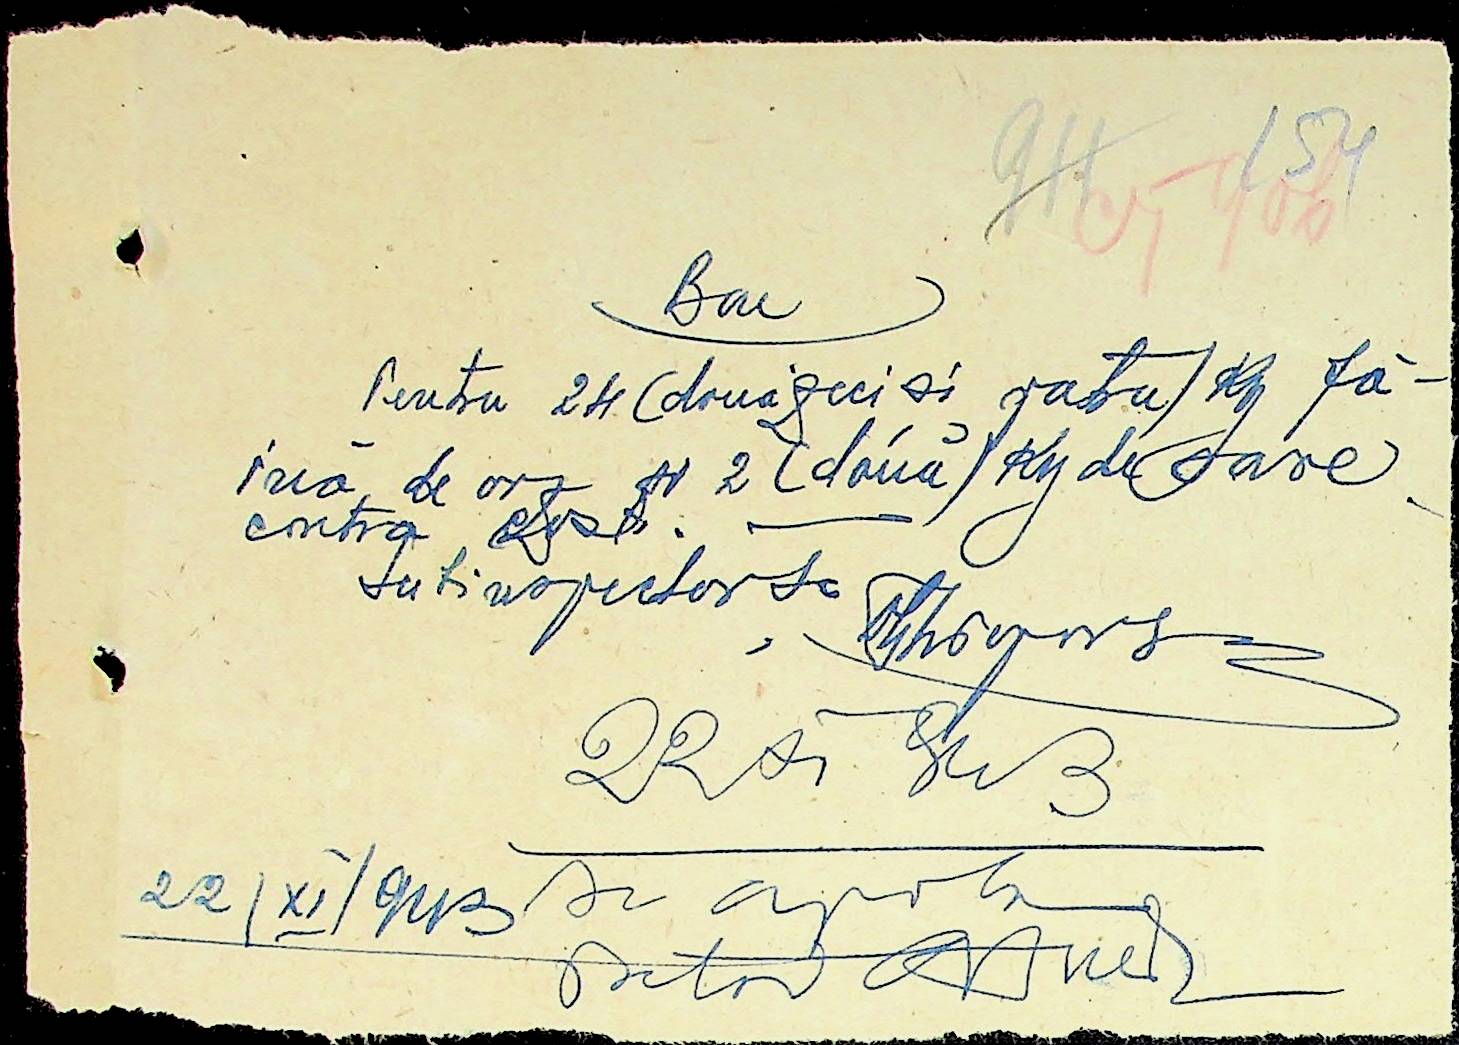 154
Bon
Pentru 24 (douăzeci si patru) Kg fă-
ină de orz și 2 (două) Kg de sare
contra cost.
Subinspector
22 XI 943
22/XI/943 Se aprobă